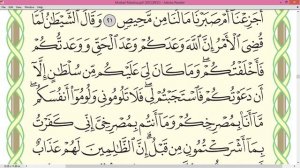 أَجَزِعْنَا أَمْ صَبَرْنَا مَا لَنَا مِن مَّحِيصٍ ٢١ وَقَالَ الشَّيْطَانُ لَمَّا
قُضِيَ الْأَمْرُ إِنَّ اللَّهَ وَعَدَكُمْ وَعْدَ الْحَقِّ وَوَعَدتُّكُمْ
فَأَخْلَفْتُكُمْ وَمَا كَانَ لِيَ عَلَيْكُم مِّن سُلْطَانٍ إِلَّا
أَن دَعَوْتُكُمْ فَاسْتَجَبْتُمْ لِي فَلَا تَلُومُونِي وَلُومُوا أَنفُسَكُم
مَّا أَنَا بِمُصْرِخِكُمْ وَمَا أَنتُم بِمُصْرِخِيَّ إِنِّي كَفَرْتُ
بِمَا أَشْرَكْتُمُونِ مِن قَبْلُ إِنَّ الظَّالِمِينَ لَهُمْ عَذَابٌ